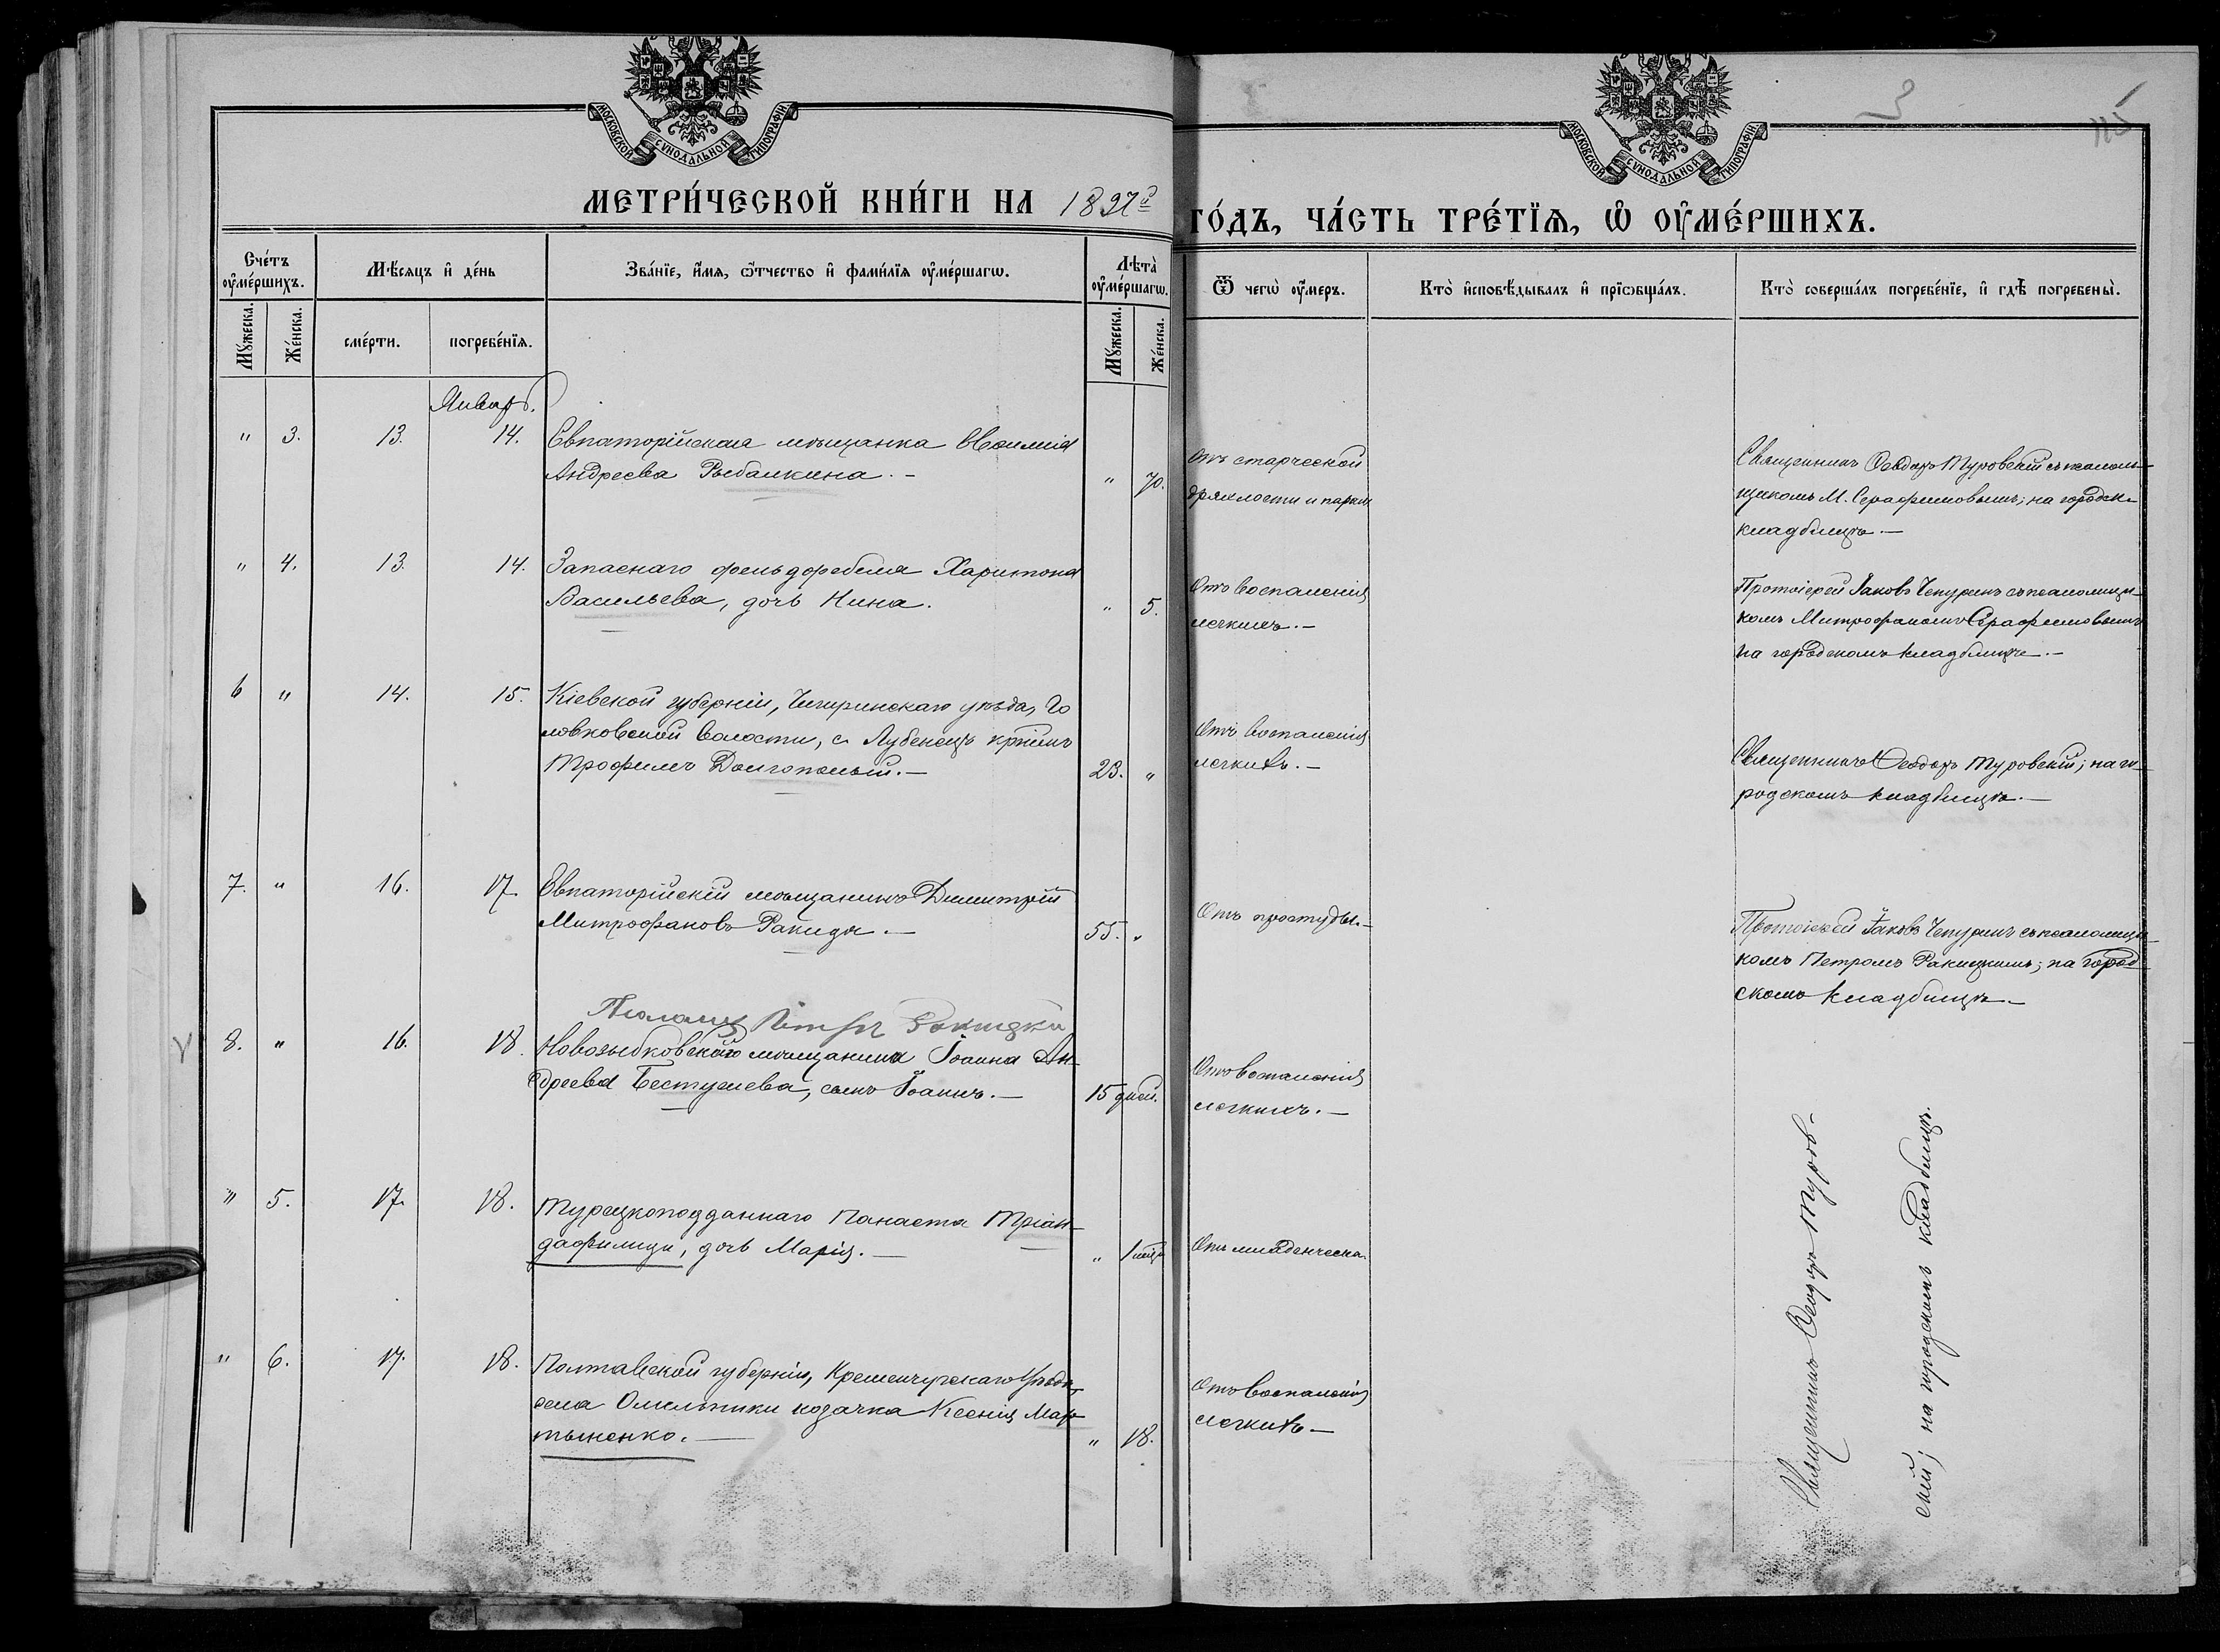 МОСКОВСКОЙ СѴНОДАЛЬНОЙ ТИПОГРАФІИ
МОСКОВСКОЙ СѴНОДАЛЬНОЙ ТИПОГРАФІИ
3
115
МЕТРИ́ЧЕСКОЙ КНИ́ГИ НА 1897й ГО́ДЪ, ЧА́СТЬ ТРЕ́ТЇѦ, Ѡ҆ ОУ҆МЕ́РШИХЪ.
Сче́тъ оу҆ме́ршихъ.
Мꙋ́жеска.
Же́нска.
Мѣ́сѧцъ и҆ де́нь
сме́рти.
погребе́нїѧ.
Зва́нїе, и҆́мѧ, ѻ҆́тчество и҆ фами́лїѧ оу҆ме́ршагѡ.
Лѣта̀ оу҆ме́ршагѡ.
Мꙋ́жеска.
Же́нска.
Ѿ чегѡ̀ оу҆́меръ.
Кто̀ и҆сповѣ́дывалъ и҆ прїѡбща́лъ.
Кто̀ соверша́лъ погребе́нїе, и҆ гдѣ̀ погребены̀.
Январь.
" 3. 13. 14. Евпаторійская мѣщанка
Андреева Рыбалкина. — " 70.
Отъ старческой
дряхлости и
Священникъ Ѳеодоръ Туровскій съ псаломъ-
щикомъ М. Серафимовымъ; на городск.
кладбищѣ. —
" 4. 13. 14. Запаснаго фельдфебеля Харитона
Васильева, дочь Нина. " 5.
Отъ воспаленія
легкихъ. —
Протоіерей Іаковъ Чепуринъ съ псаломщи-
комъ Митрофаномъ Серафимовымъ
на городскомъ кладбищѣ. —
6 " 14. 15. Кіевской губерніи, Чигиринскаго уѣзда, Го
ловковской волости, с. Лубенецъ кр-нинъ
Трофимъ Долгополый. — 23. "
Отъ воспаленія
легкихъ. —
Священникъ Ѳеодоръ Туровскій; на го-
родскомъ кладбищѣ. —
7. " 16. 17. Евпаторійскій мѣщанинъ Димитрій
Митрофановъ Ракида. — 55. "
Отъ простуды. —
Протоіерей Іаковъ Чепуринъ съ псаломщи-
комъ Петромъ Ракицкимъ; на город-
скомъ кладбищѣ. —
Псаломщ Петръ Ракицкій
V 8. " 16. 18. Новозыбковскаго мѣщанина Іоанна Ан-
дреева Бестужева, сынъ Іоаннъ. — 15 дней.
Отъ воспаленія
легкихъ. —
" 5. 17. 18. Турецкоподданнаго Панаета Тріан-
дафилиди, дочь Марія. — " 1 мѣс.
Отъ младенческа.
" 6. 17. 18. Полтавской губерніи, Кременчугскаго уѣзда,
села Омельники козачка Ксенія Мар-
тыненко. — " 18.
Отъ воспаленія
легкихъ —
Священникъ Ѳеодоръ Туров-
скій; на городскомъ кладбищѣ.